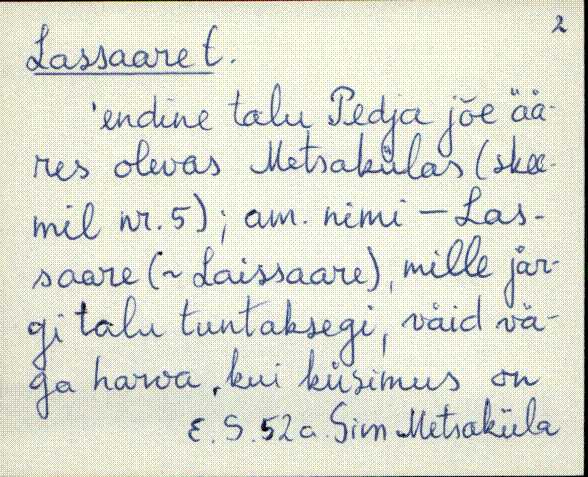 2
Lassaare t.
'endine talu Pedja jõe ää-
res olevas Metsakülas (skee-
mil nr. 5); am. nimi – Las-
saare (~ Laissaare), mille jär-
gi talu tuntaksegi, vaid vä-
ga harva, kui küsimus on
E. S. 52 a. Sim Metsaküla